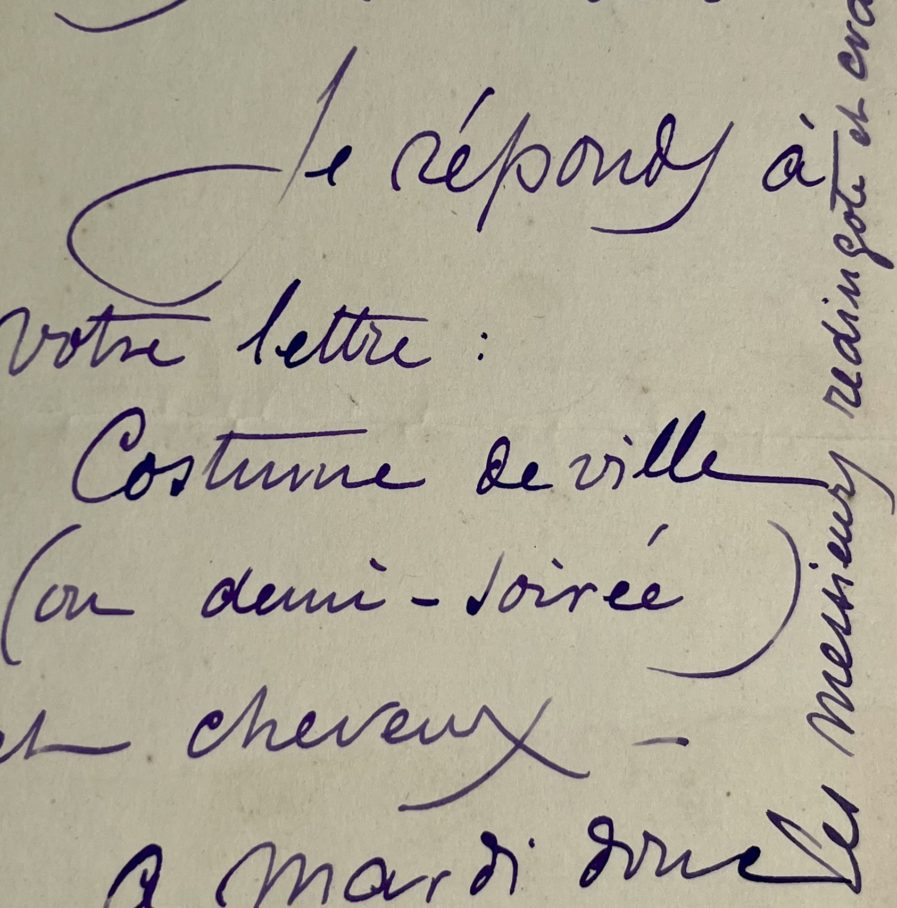 Je réponds à
votre lettre :
Costume de ville
(ou demi-soirée)
et cheveux -
A mardi donc
Les messieurs redingote et